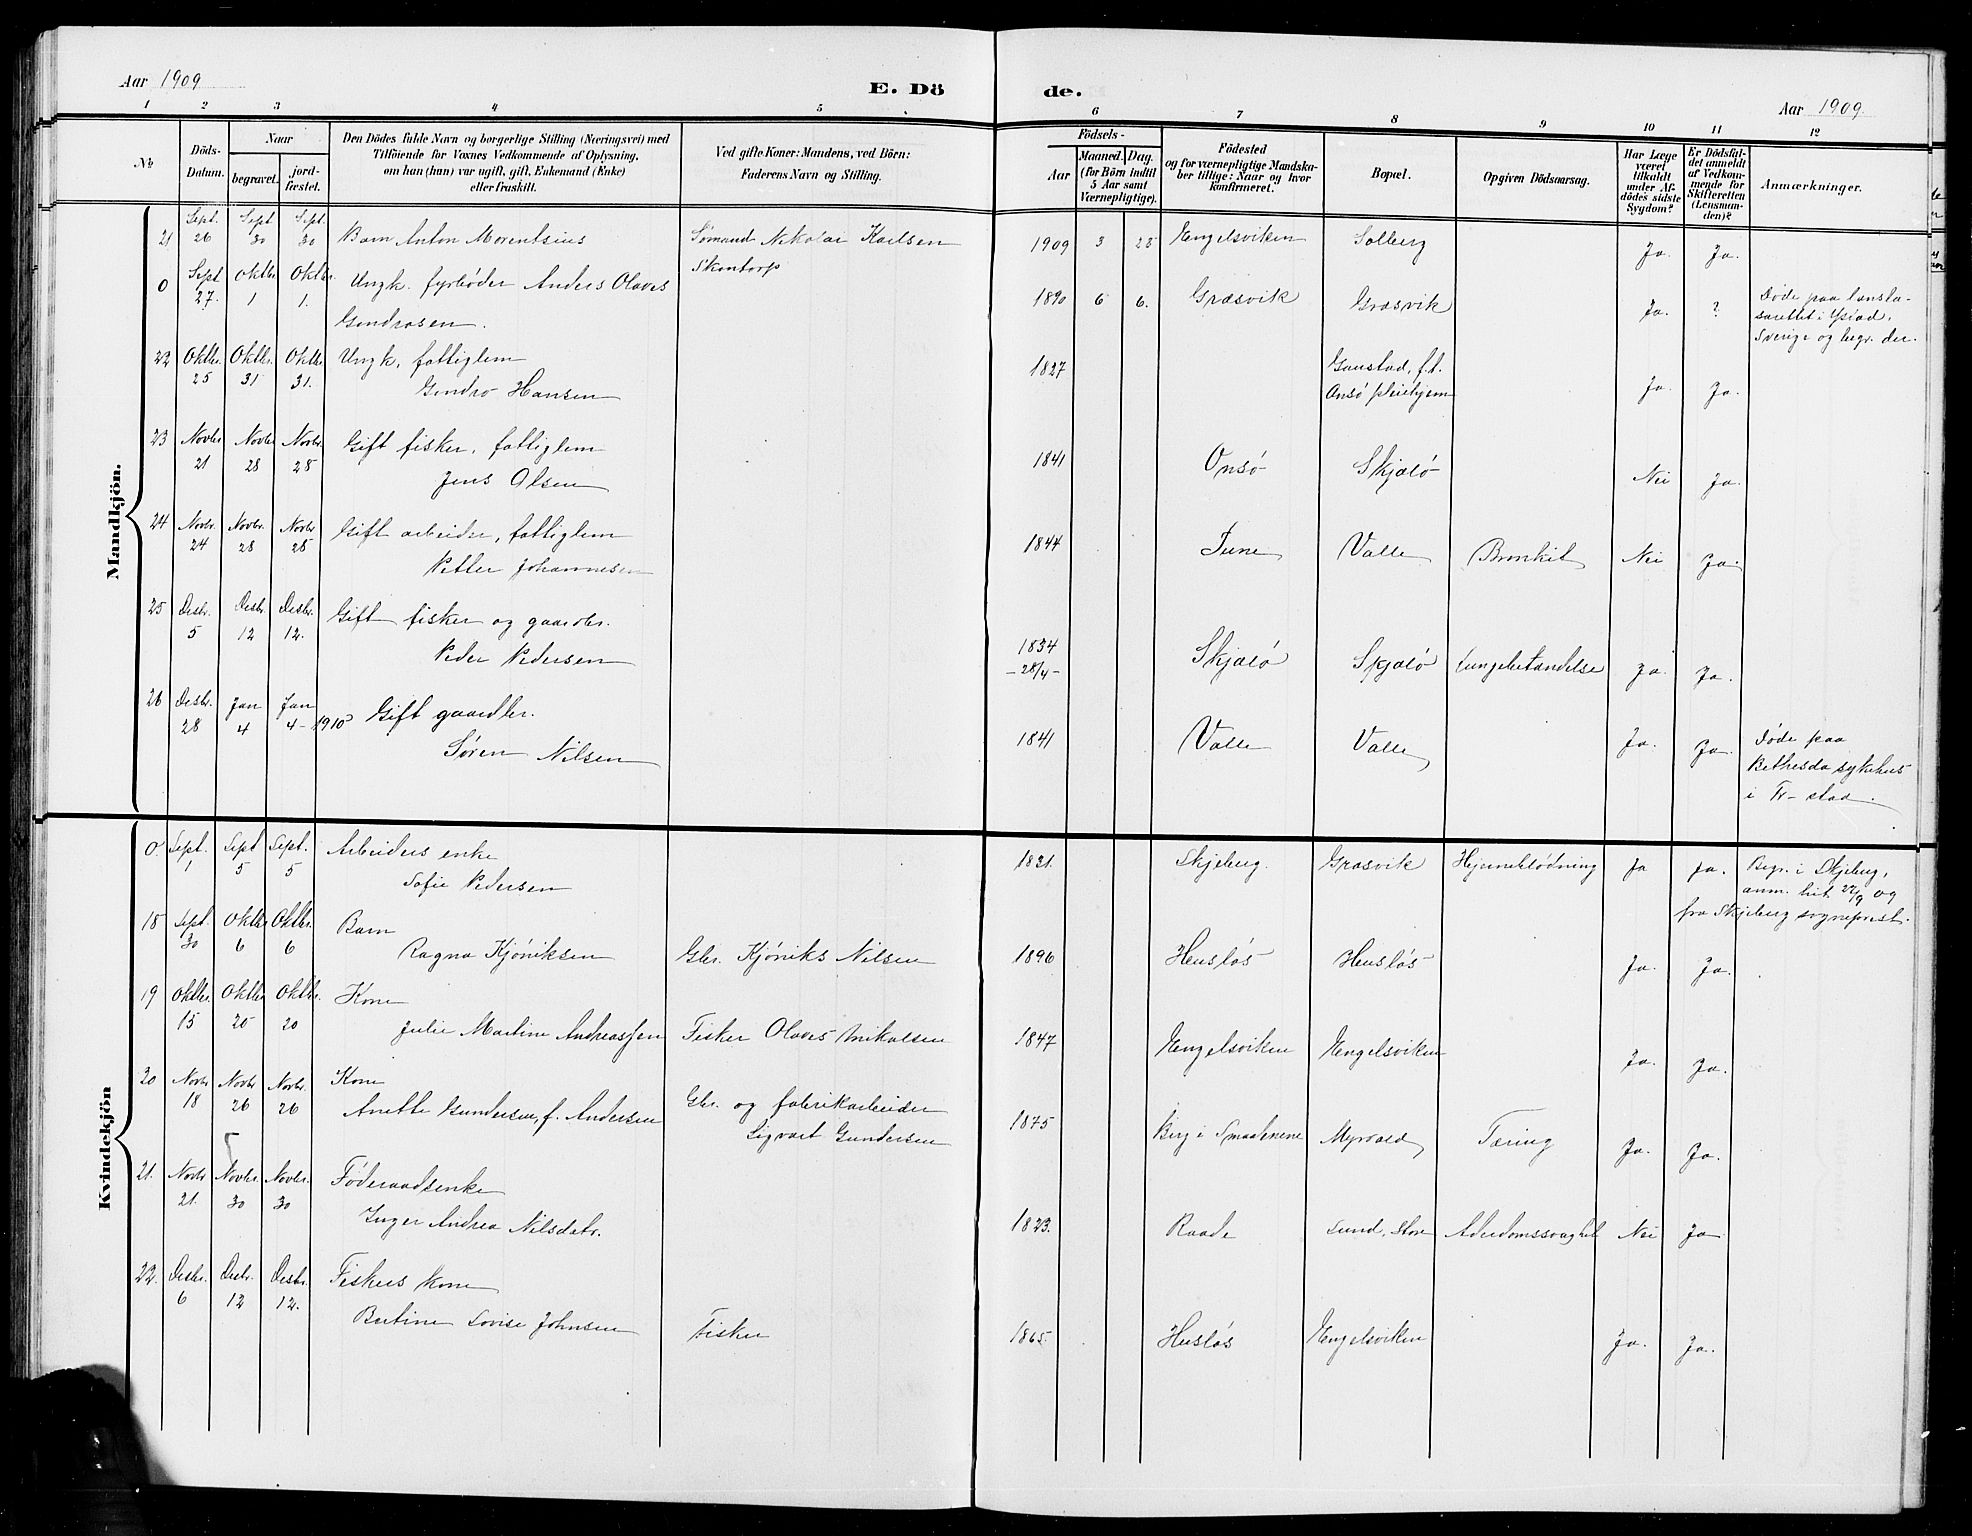 Aar 1909
E. Dö
de.
Aar 1909.
1 2 3 4 5 6 7 8 9 10 11 12
No
Döds-
Datum.
Naar
begravet.
jord-
fæstet.
Den Dödes fulde Navn og borgerlige Stilling (Næringsvei) med
Tilföiende for Voxnes Vedkommende af Oplysning,
om han (hun) var ugift, gift, Enkemand (Enke)
eller fraskilt.
Ved gifte Koner: Mandens, ved Börn:
Faderens Navn og Stilling.
Födsels-
Aar
Maaned. Dag.
(for Börn indtil
5 Aar samt
Værnepligtige).
Födested
og for værnepligtige Mandska-
ber tillige: Naar og hvor
konfirmeret.
Bopæl.
Opgiven Dödsaarsag.
Har Læge
været
tilkaldt
under Af-
dödes sidste
Sygdom?
Er Dödsfal-
det anmeldt
af Vedkom-
mende for
Skifteretten
(Lensman-
den)?
Anmærkninger.
Mandkjön.
21 Sept. 26 Sept 30 Sept. 30 Barn Anton Morentsius Sømand Nikolai Karlsen 1909 3 28 Engelsviken Solberg Ja. Ja.
Skontorp
0 Sept 27. Oktbr 1 Oktbr. 1. Ungk. fyrbøder Anders Olaves 1890 6 6. Græsvik Græsvik Ja. ? Døde paa lænsla-
Gundrosen. sarettet i Ystad,
Sverige og begr. der.
22 Oktbr. 25 Oktbr. 31 Oktbr. 31. Ungk. fattiglem 1827 Gaustad, f.t. Ja. Ja.
Gundro Hansen Onsø pleiehjem
23 Novbr 21 Novbr 28 Novbr. 28 Gift fisker, fattiglem 1841 Onsø Skjælø Nei Ja.
Jens Olsen
24 Novbr. 24 Novbr. 28 Novbr. 28 Gift arbeider, fattiglem 1844 Tune Valle Bronkit Nei Ja.
Petter Johannesen
25 Desbr. 5 Desbr. 12 Desbr. 12. Gift fisker og gaardbr. 1834 -28/4- Skjælø Skjælø Lungebetændelse Ja. Ja.
Peder Pedersen
26 Desbr. 28 Jan 4 Jan 4-1910 Gift gaardbr. 1841 Valle Valle Ja. Ja. Døde paa
Søren Nilsen Bethesda sykehus
i Fr-stad.
Kvindekjön
0. Sept. 1 Sept 5 Sept. 5 Arbeiders enke 1821. Skjeberg. Græsvik Hjerneblødning Ja Ja. Begr. i Skjeberg,
Sofie Pedersen anm. hit 27/9 09
fra Skjeberg sogneprest.
18 Sept. 30 Oktbr 6 Oktbr. 6 Barn
Ragna Kjøniksen Gbr. Kjøniks Nilsen 1896 Husløs Husløs Ja. Ja.
19 Oktbr. 15 Oktbr 20 Oktbr. 20 Kone
Julie Martine Andreassen Fisker Olaves Mikalsen 1847 Engelsviken Engelsviken Ja. Ja.
20 Novbr 18 Novbr 26 Novbr. 26 Kone
Anette Gundersen, f. Andersen Gbr. og fabrikarbeider 1875 Berg i Smaalenene Myrvold Tæring Ja. Ja.
Sigvart Gundersen
21. Novbr 21. Novbr. 30 Novbr. 30 Føderaadsenke
Inger Andrea Nilsdatr. 1823. Raade Lund, Store Alderdomssvaghet Nei Ja
22. Desbr. 6 Desbr. 12 Desbr. 12. Fiskers kone
Bertine Lovise Johnsen Fisker 1865. Husløs Engelsviken Ja. Ja.